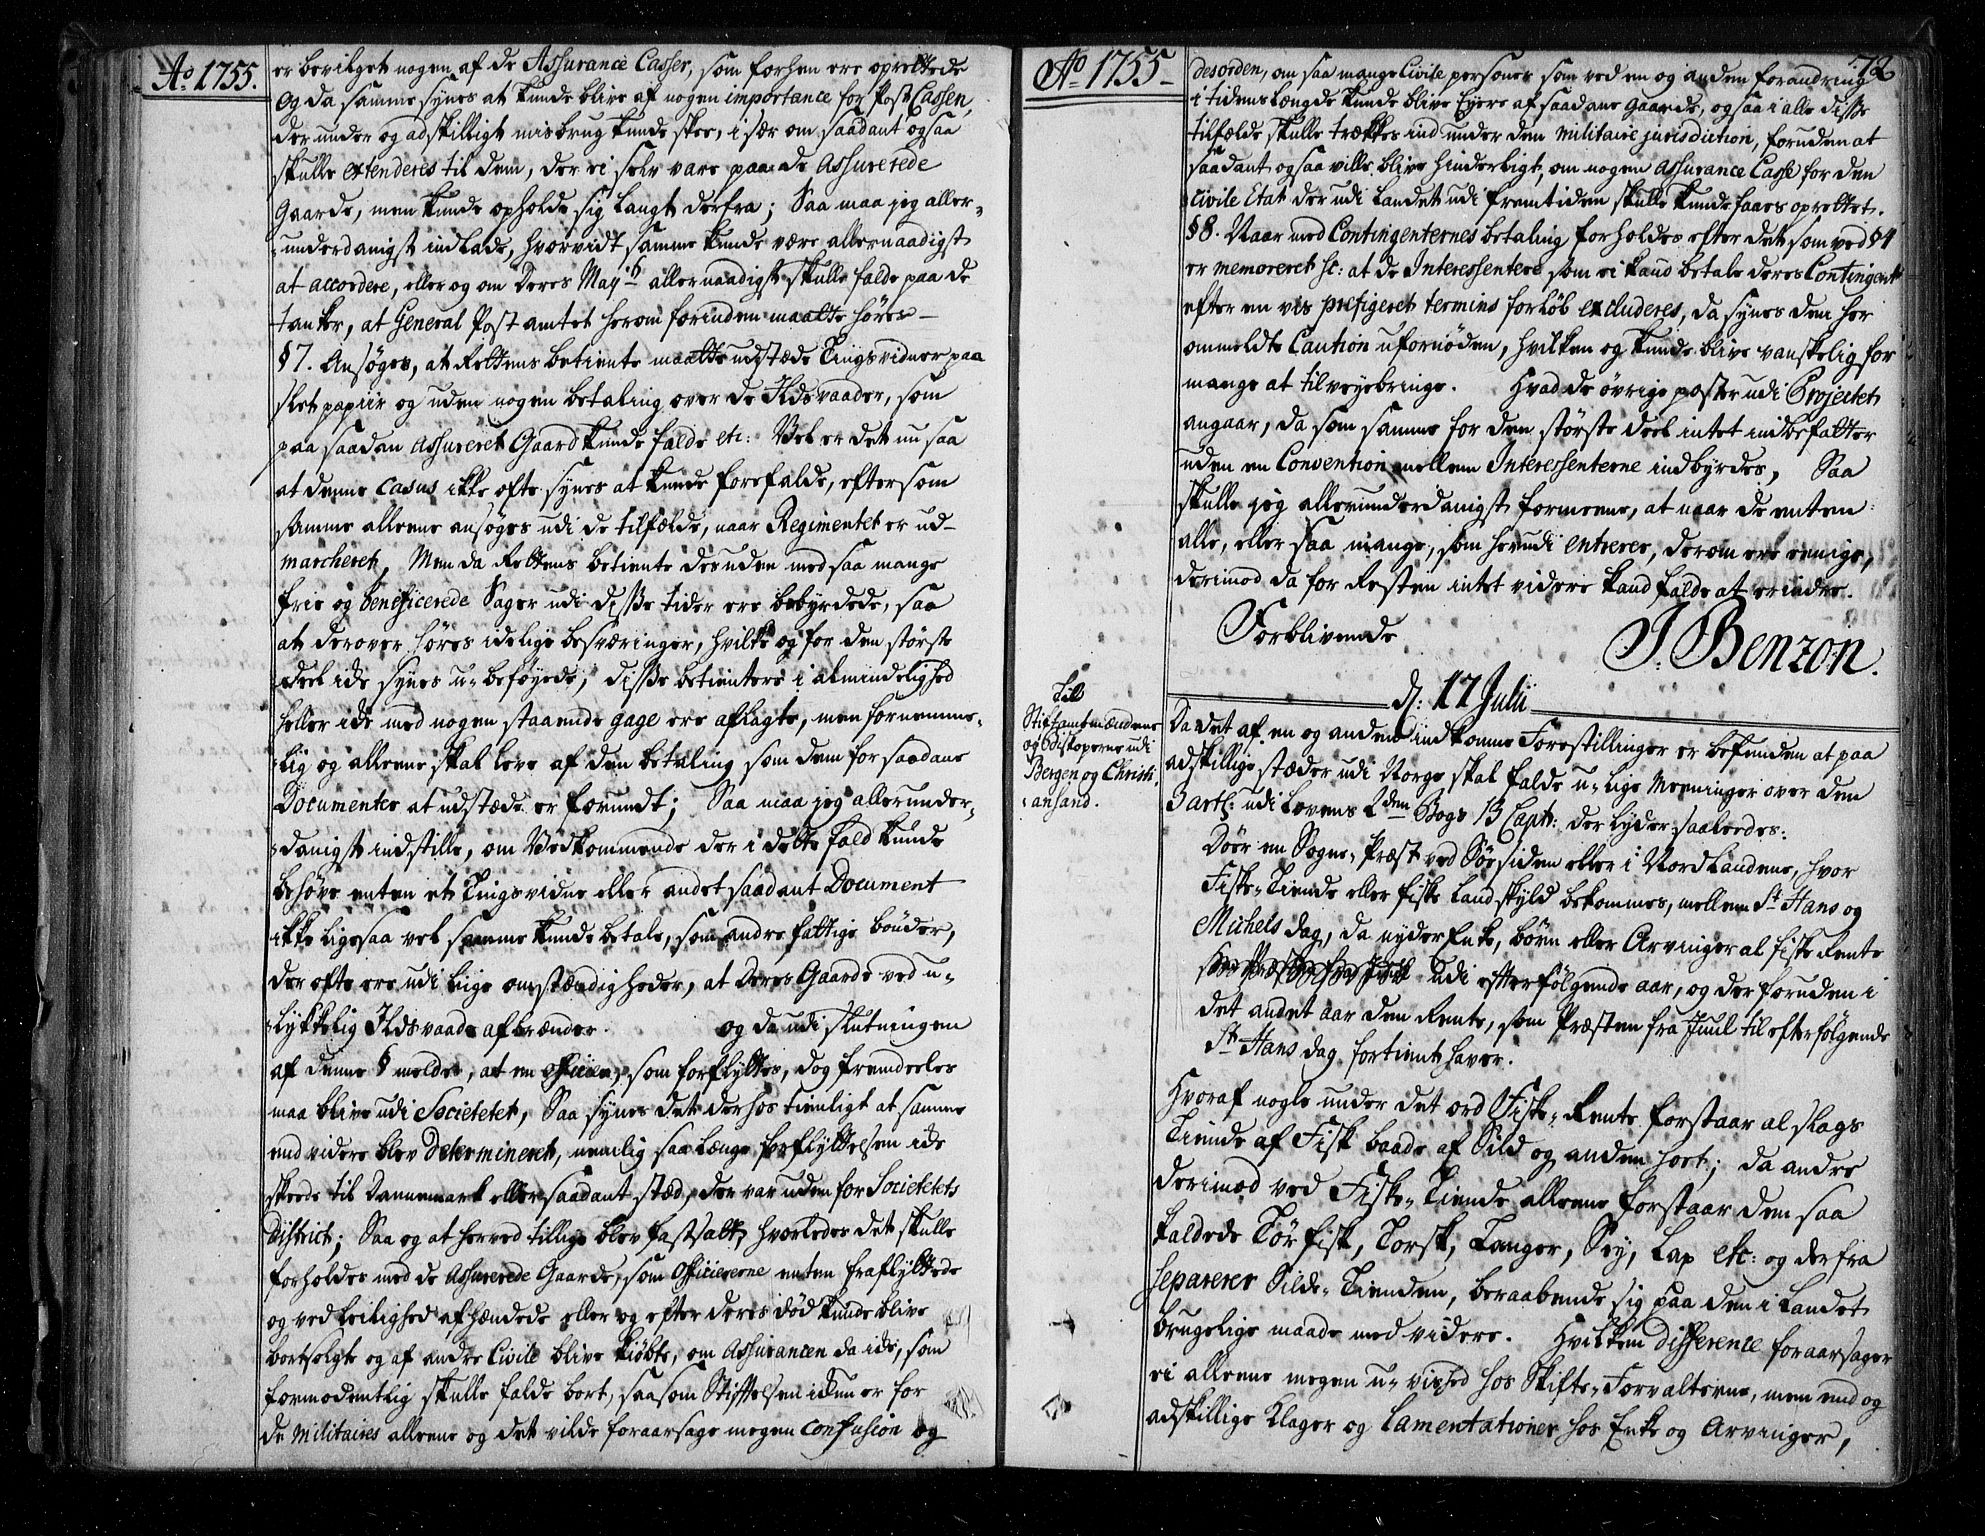 Ao 1755.
er bevilget nogen af de Assurance Casser, som forhen ere oprettede
Og da samme synes at kunde blive af nogen importance for Post Cassen,
der under og adskilligt misbrug kunde skee, i sær om saadant ogsaa
skulle extenderes til dem, der ei selv vare paa de Assurerede
Gaarde, men kunde opholde sig langt derfra; Saa maa jeg aller-
underdanigst indlade, hvorvidt samme kunde være allernaadigst
at accordere, eller og om Deres Mayts allernaadigst skulle falde paa de
tanker, at General Post amtet herom forinden maatte høres —
§ 7. Ansøges, at Rettens betiente maatte udstæde Tingsvidner paa
slet papiir og uden nogen betaling over de Ildsvaader, som
paa saadan Assureret Gaard kunde falde etc: Vel er det nu saa
at denne Casus ikke ofte synes at kunde forefalde, eftersom
samme alleene ansøges udi de tilfælde, naar Regimentet er ud-
marcheret, Men da Rettens betiente desuden med saa mange
frie og beneficerede Sager udi disse tider ere bebyrdede, saa
at derover høres idelige besværinger, hvilke og for den største
deel ide synes u-beføyede, disse betientere i almindelighed
heller ide med nogen staaende gage ere aflagte, men fornemme-
lig og alleene skal leve af den betaling som dem for saadane
Documenter at udstæde er forundt; Saa maa jeg allerunder-
danigst indstille, om Vedkommende der i dette fald kunde
behøve enten et Tingsvidne eller andet saadant Document
ikke ligesaa vel samme kunde betale, som andre fattige bønder,
der ofte ere udi liige omstændigheder, at deres Gaarde ved u-
lykkelig Ildsvaade afbrænder. og da udi slutningen
af denne § meldes, at en officier, som forflyttes, dog fremdeeles
maa blive udi Societetet, Saa synes det derhos tienligt at samme
end videre blev Determineret, nemlig saa længe forflyttelsen ide
skeede til Dannemark eller saadant stæd, der var uden for Societetets
District; Saa og at herved tillige blev fastsatt, hvorledes det skulle
forholdes med de Assurerede Gaarde, som Officiererne enten fraflyttede
og ved leilighed afhændede eller og efter deres død kunde blive
bortsolgte og af andre Civile blive kiøbte, om Assurancen da ide, som
formodentlig skulle falde bort, saasom Stiftelsen iden er for
de Militaires alleene og det vilde foraarsage megen Confusion og
Ao 1755
72
desorden, om saa mange Civile personer som ved en og anden forandring
i tidens længde kunde blive Eyere af saadane gaarde, ogsaa i alle disse
tilfælde skulle trækkes ind under den Militaire jurisdiction, foruden at
saadant ogsaa ville blive hinderligt, om nogen Assurance Casse for den
Civile Etat der udi Landet udi fremtiden skulle kunde faaes oprettet.
§ 8. Naar med Contingenternes betaling forholdes efter det som ved § 4
er memoreret sc: at de Interessentere som ei kand betale deres Contingent
efter en vis prefigeret termins forløb excluderes, da synes den her
ommeldte Caution ufornøden, hvilken og kunde blive vanskelig for
mange at tilveyebringe. Hvad de øvrige poster udi Projectet
angaar, da som samme for den største deel intet indbefatter
uden en Convention mellem Interessenterne indbyrdes, Saa
skulle jeg allerunderdanigst formeene, at naar de enten
alle, eller saa mange, som herudi entrerer, derom ere eenige,
derimod da for Resten intet videre kand falde at erindre.
Forblivende
J: Benzon.
d: 17 Julii
Til
Stiftamtmændene
og Biskoperne udi
Bergen og Christi-
ansand.
Da det af en og anden indkomne Forestillinger er befunden at paa
adskillige stæder udi Norge skal falde u-lige Meeninger over den
3 artl: udi Lovens 2den Bogs 13 Capt: der lyder saaleedes:
Døer en Sogne-Præst ved Søesiden eller i Nordlandene, hvor
Fiske-Tiende eller fiske Landskyld bekommes, mellem St Hans og
Michels dag, da nyder Enke, børn eller Arvinger al fiske Rente
udi efterfølgende aar, og der foruden i
det andet aar den Rente, som Præsten fra Juul til efterfølgende
St Hans dag fortient haver.
Hvoraf nogle under det ord Fiske-Rente forstaar al slags
Tiende af Fisk baade af Sild og anden sort; da andre
derimod ved Fiske-Tiende alleene forstaar den saa
kaldede Tør fisk, Torsk, Langer, Sey, Lax etc: og derfra
separerer Silde-Tienden, beraabende sig paa den i Landet
brugelige maade med videre. Hvilken difference foraarsager
ei alleene megen u-vished hos Skifte-Forvalterne, men end og
adskillige Klager og Lamentationer hos Enke og Arvinger,